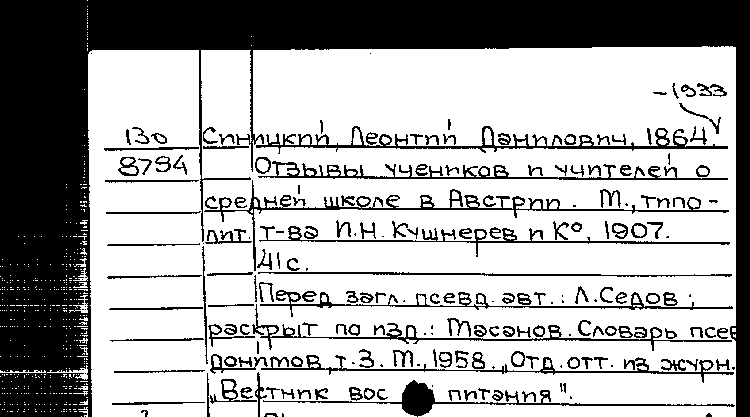 -1933
130 Синицкий, Леонтий Данилович, 1864.
8794 Отзывы учеников и учителей о
средней школе в Австрии. М., типо-
лит. т-ва И.Н. Кушнерев и К°, 1907.
41 с.
Перед загл. псевд. авт.: Л.Седов;
раскрыт по изд.: Масанов. Словарь псев
донимов, т.3. М., 1958. „Отд. отт. из журн.
„Вестник вос питания".